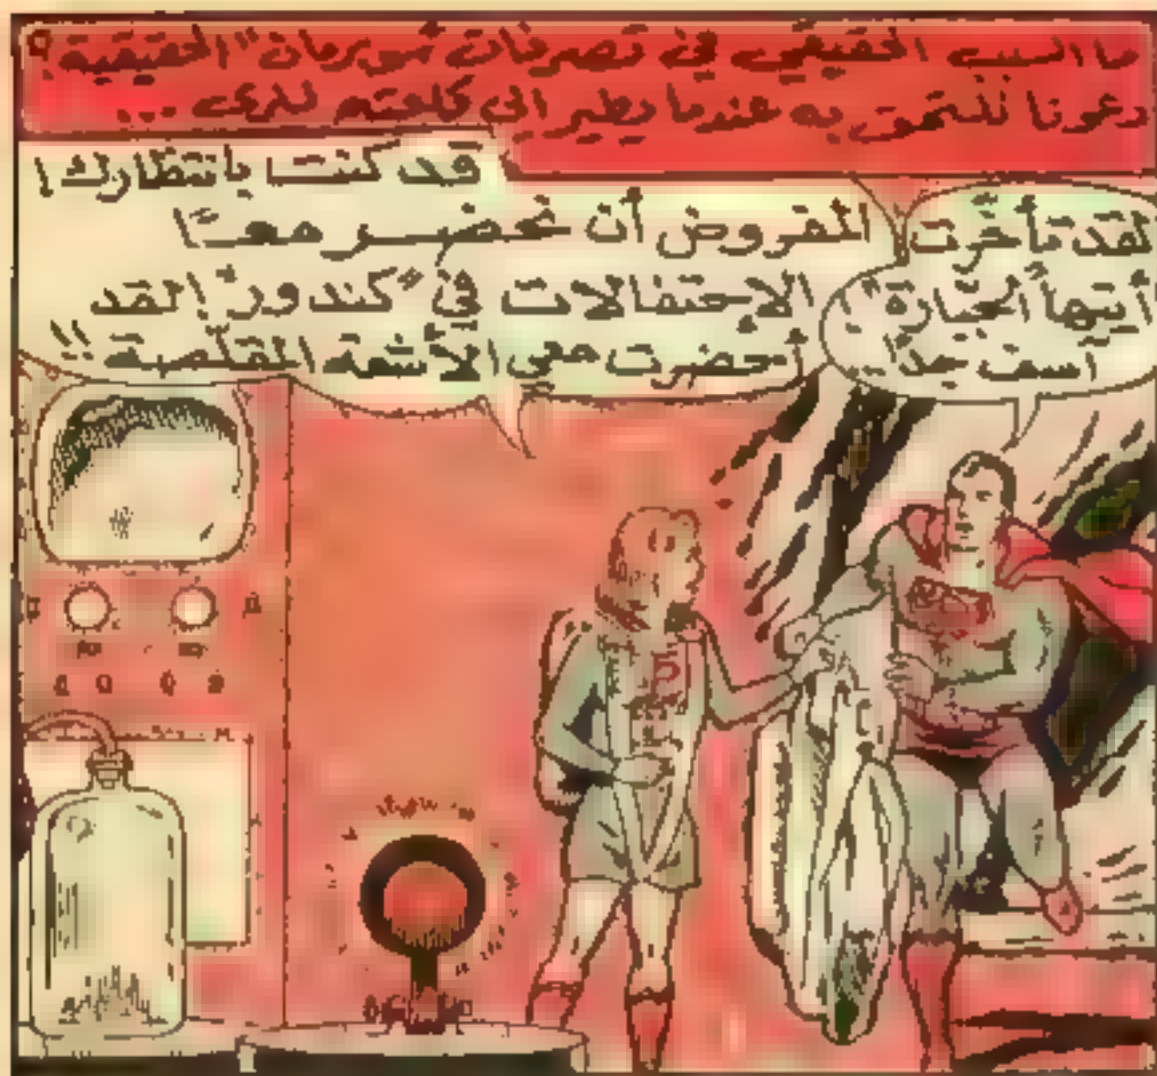 ما السبب الحقيقي في تصرفات سوبرمان "الحقيقية"؟
دعونا نلتحق به عندما يطير الى قلعته لنرى ...
لقد تأخرت
أيتها الجبارة"!
آسف جداً..
قد كنت بانتظارك!
المفروض أن نحضر معاً
الإحتفالات في "كندور"! لقد
أحضرت معي الأشعة المقلصة!!
S